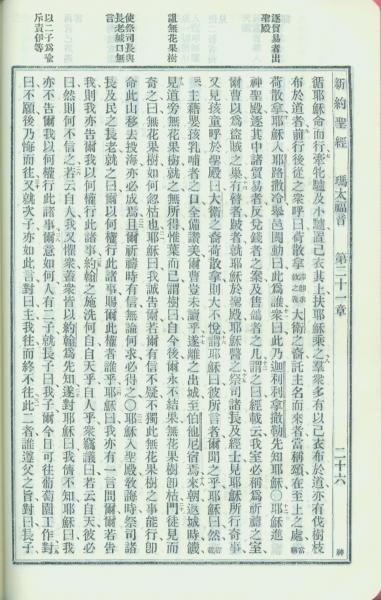 新約聖經 瑪太福音 第二十一章 二十六 神
逐貿易者出
聖殿
詛無花果樹
使祭司長與
長老緘口無
言
以二子爲喩
斥責伊等
循耶穌命而行牽牝驢及小驢置己衣其上扶耶穌乘之羣衆多有以己衣布於道亦有伐樹枝
布於道者前行後從之衆呼曰荷散拿大衛之裔託主名而來者當稱頌在至上之處
荷散拿耶穌入耶路撒冷舉邑閧動曰此爲誰衆曰此乃迦利利拿撒勒先知耶穌○耶穌進
神聖殿逐其中諸貿易者反兌錢者之案及售鴿者之几謂之曰經載云我室必稱爲祈禱之室
爾曹以爲盜賊之巢有瞽者跛者就耶穌於聖殿耶穌醫之祭司諸長及經士見耶穌所行奇事
又見孩童呼於聖殿曰大衛之裔荷散拿則大不悅謂耶穌曰彼所言者爾聞之乎耶穌曰然
主藉嬰孩乳哺者之口全備讚美爾曹豈未讀乎遂離之出城至伯他尼宿焉來朝返城時饑
見道旁有無花果樹就之無所得惟葉而已謂樹曰自今後爾永不結果無花果樹卽枯門徒見而
奇之曰無花果樹如何忽枯也耶穌曰我誠告爾若爾有信不疑不獨此無花果樹之事能行卽
命此山移去投海亦必成焉且爾祈禱時有信無論何求必得之○耶穌入聖殿敎誨時祭司諸
長及民之長老就之曰爾以何權行此諸事賜爾此權者誰乎耶穌曰我亦有一言問爾爾若告
我則我亦告爾我以何權行此諸事約翰之施洗何自自天乎自人乎衆竊議曰若云自天彼必
曰然則何不信之若云自人我又懼衆蓋衆皆以約翰爲先知遂對耶穌曰我儕不知耶穌曰我
亦不告爾我以何權行此諸事爾意如何人有二子就長子曰我子爾今日可往葡萄園工作對
曰不願後乃悔而往又就次子亦如此言對曰主我往而終不往此二者誰遵父之旨對曰長子